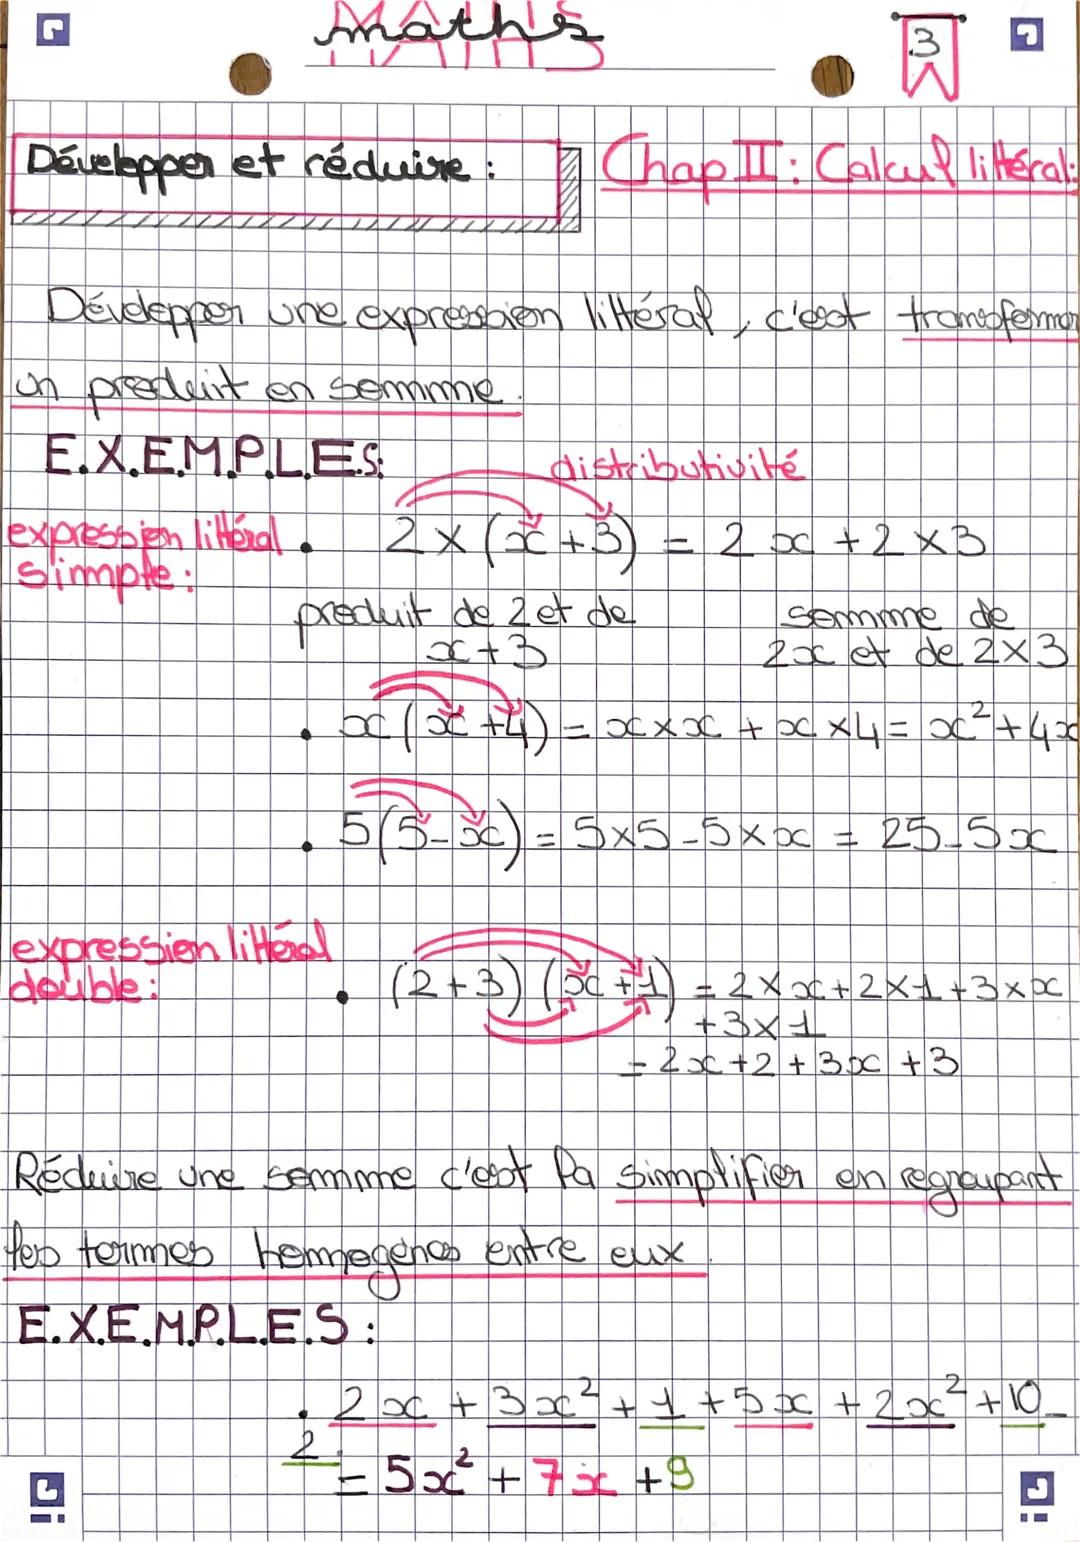 maths
MATHS
3
Développer et réduire :
Chap II : Calcul littéral:
Développer une expression littéral, c'est transformer
un produit en somme.
E.X.E.M.P.L.E.S:
distributivité
expression littéral
simple :
• 2 × (x + 3) = 2x + 2 × 3
produit de 2 et de
x + 3
somme de
2x et de 2×3
• x (x + 4) = x × x + x × 4 = x² + 4x
• 5(5 - x) = 5×5 - 5 × x = 25 - 5x
expression littéral
double :
• (2 + 3) (x + 1) = 2 × x + 2 × 1 + 3 × x
+ 3 × 1
= 2x + 2 + 3x + 3
Réduire une somme c'est la simplifier en regroupant
les termes homogènes entre eux.
E.X.E.M.P.L.E.S :
• 2x + 3x² + 1 + 5x + 2x² + 10 -
2.
= 5x² + 7x + 9